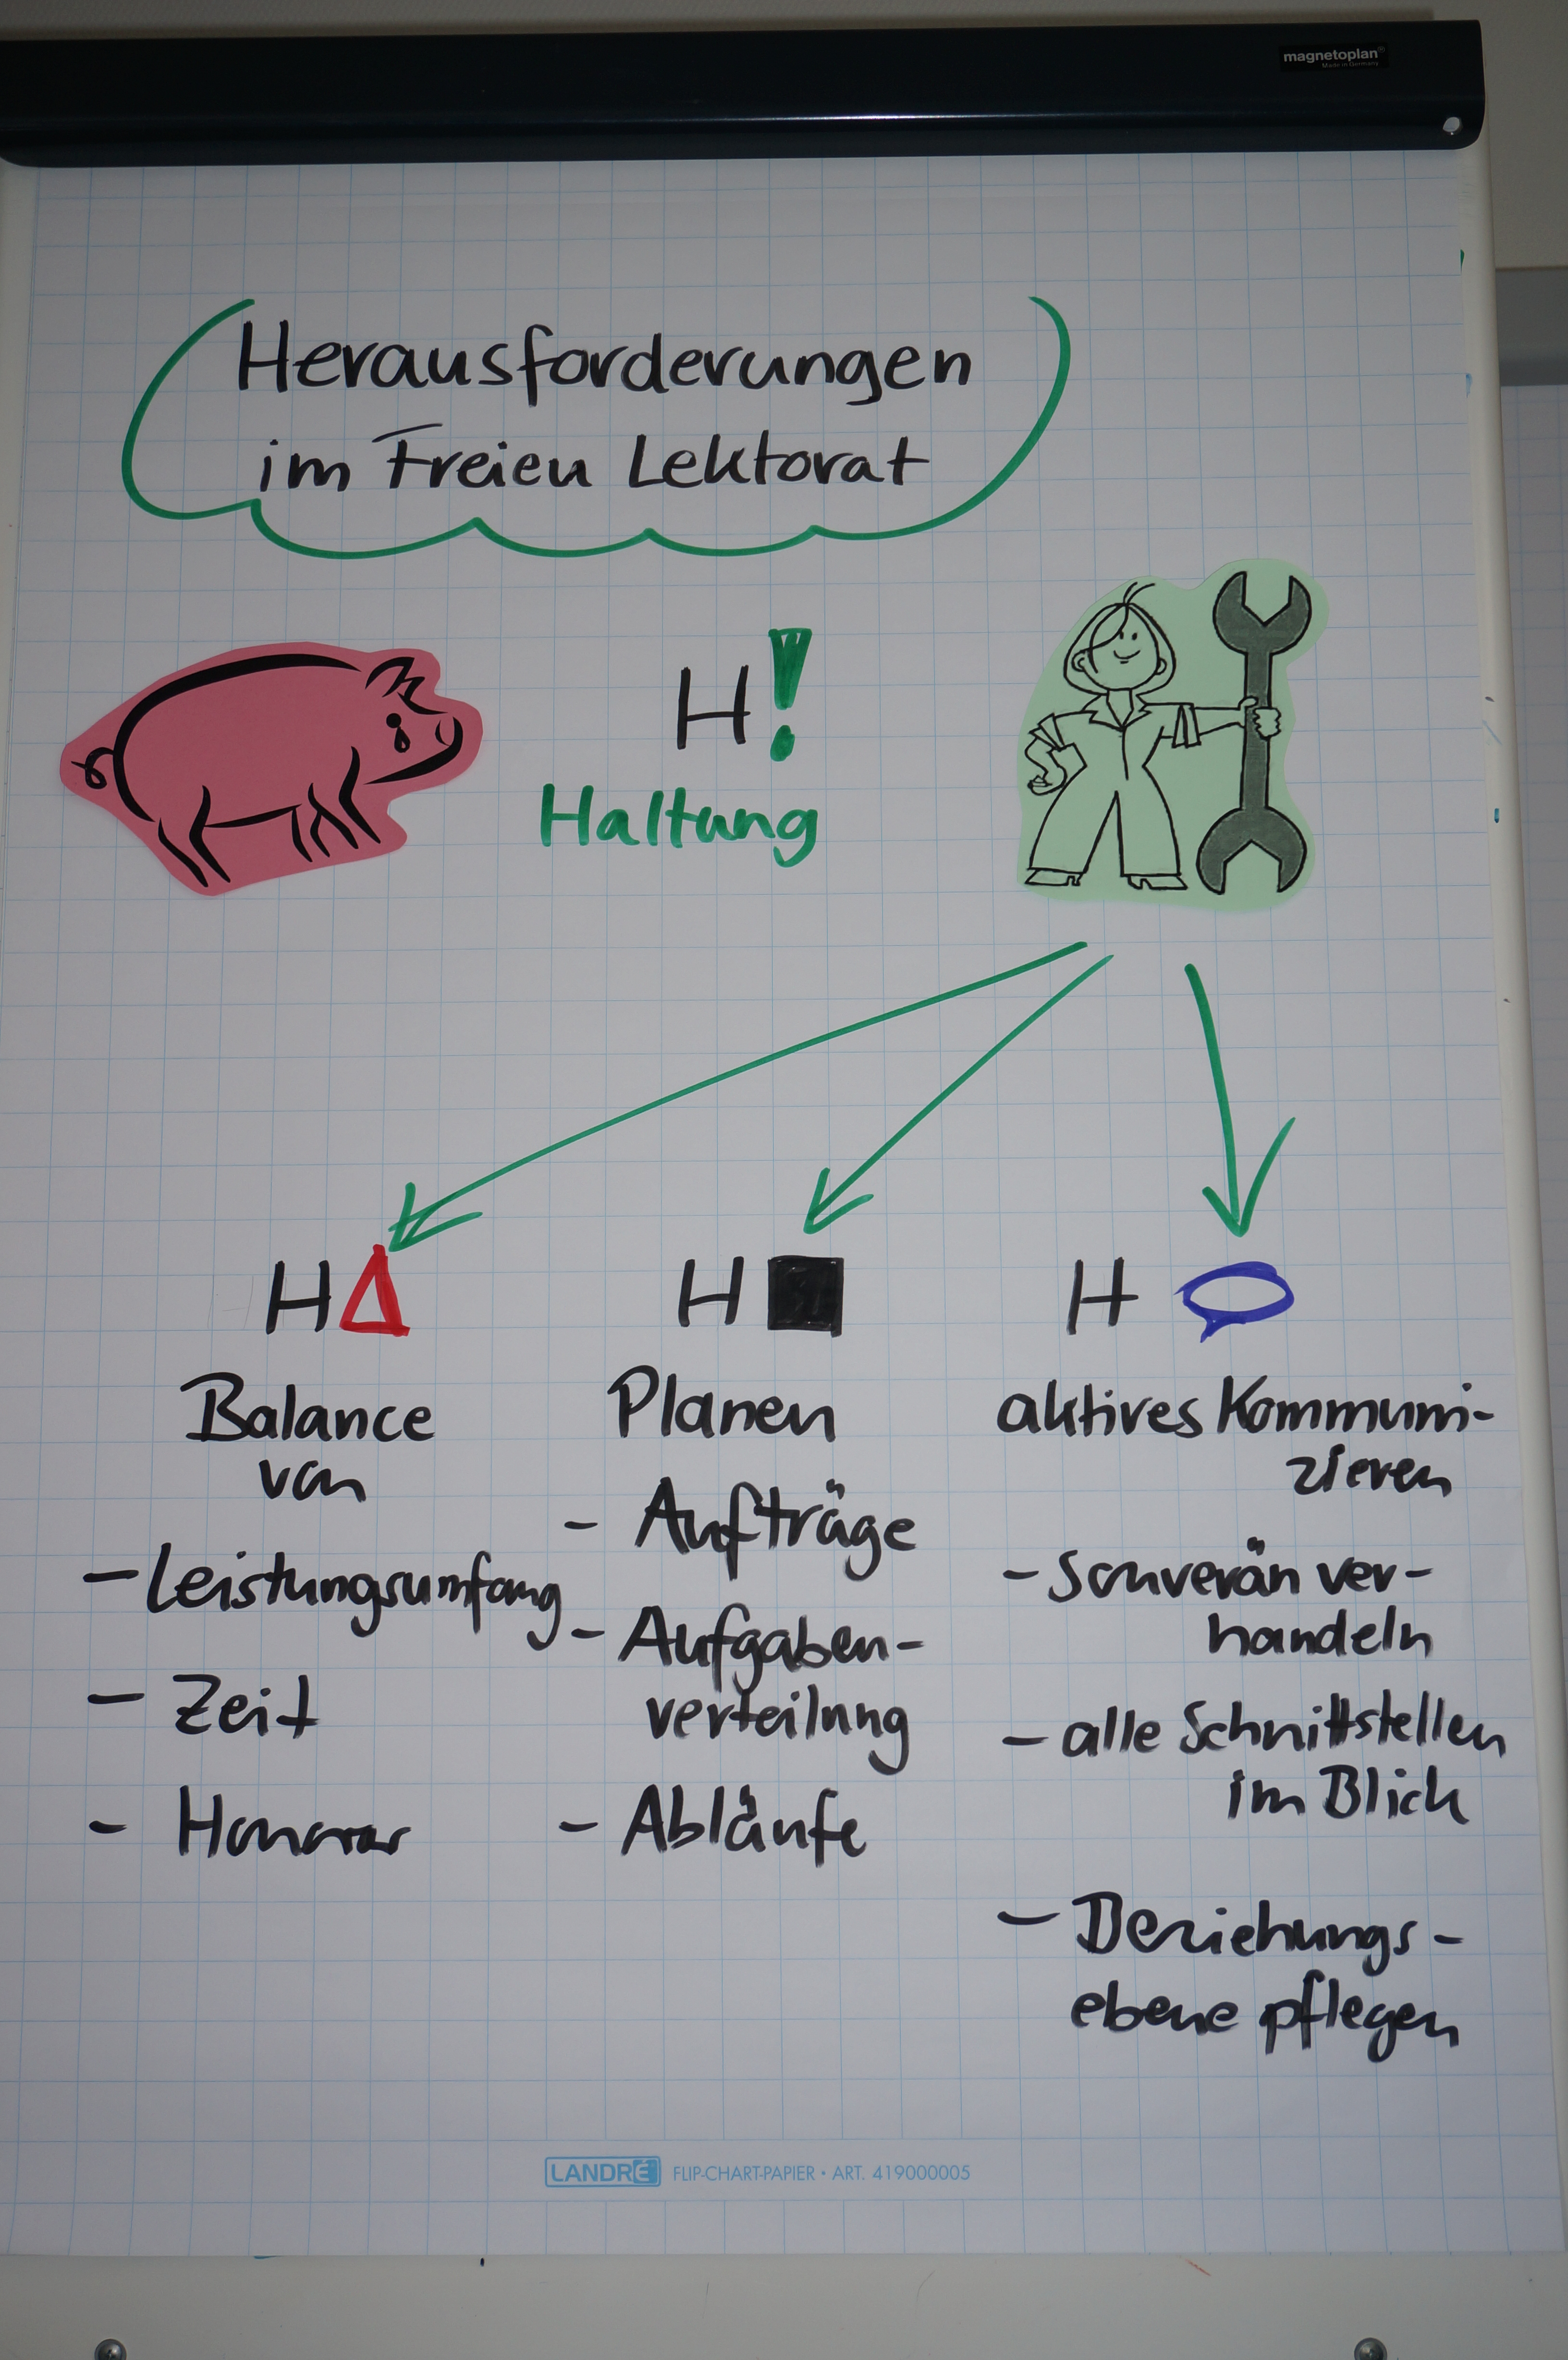 magnetoplan®
Made in Germany
Herausforderungen
im Freien Lektorat
H!
Haltung
H
Balance
von
- Leistungsumfang
- Zeit
- Honorar
H
Planen
- Aufträge
- Aufgaben-
verteilung
- Abläufe
H
aktives Kommuni-
zieren
- Souverän ver-
handeln
- alle Schnittstellen
im Blick
- Beziehungs-
ebene pflegen
LANDRÉ FLIP-CHART-PAPIER • ART. 419000005